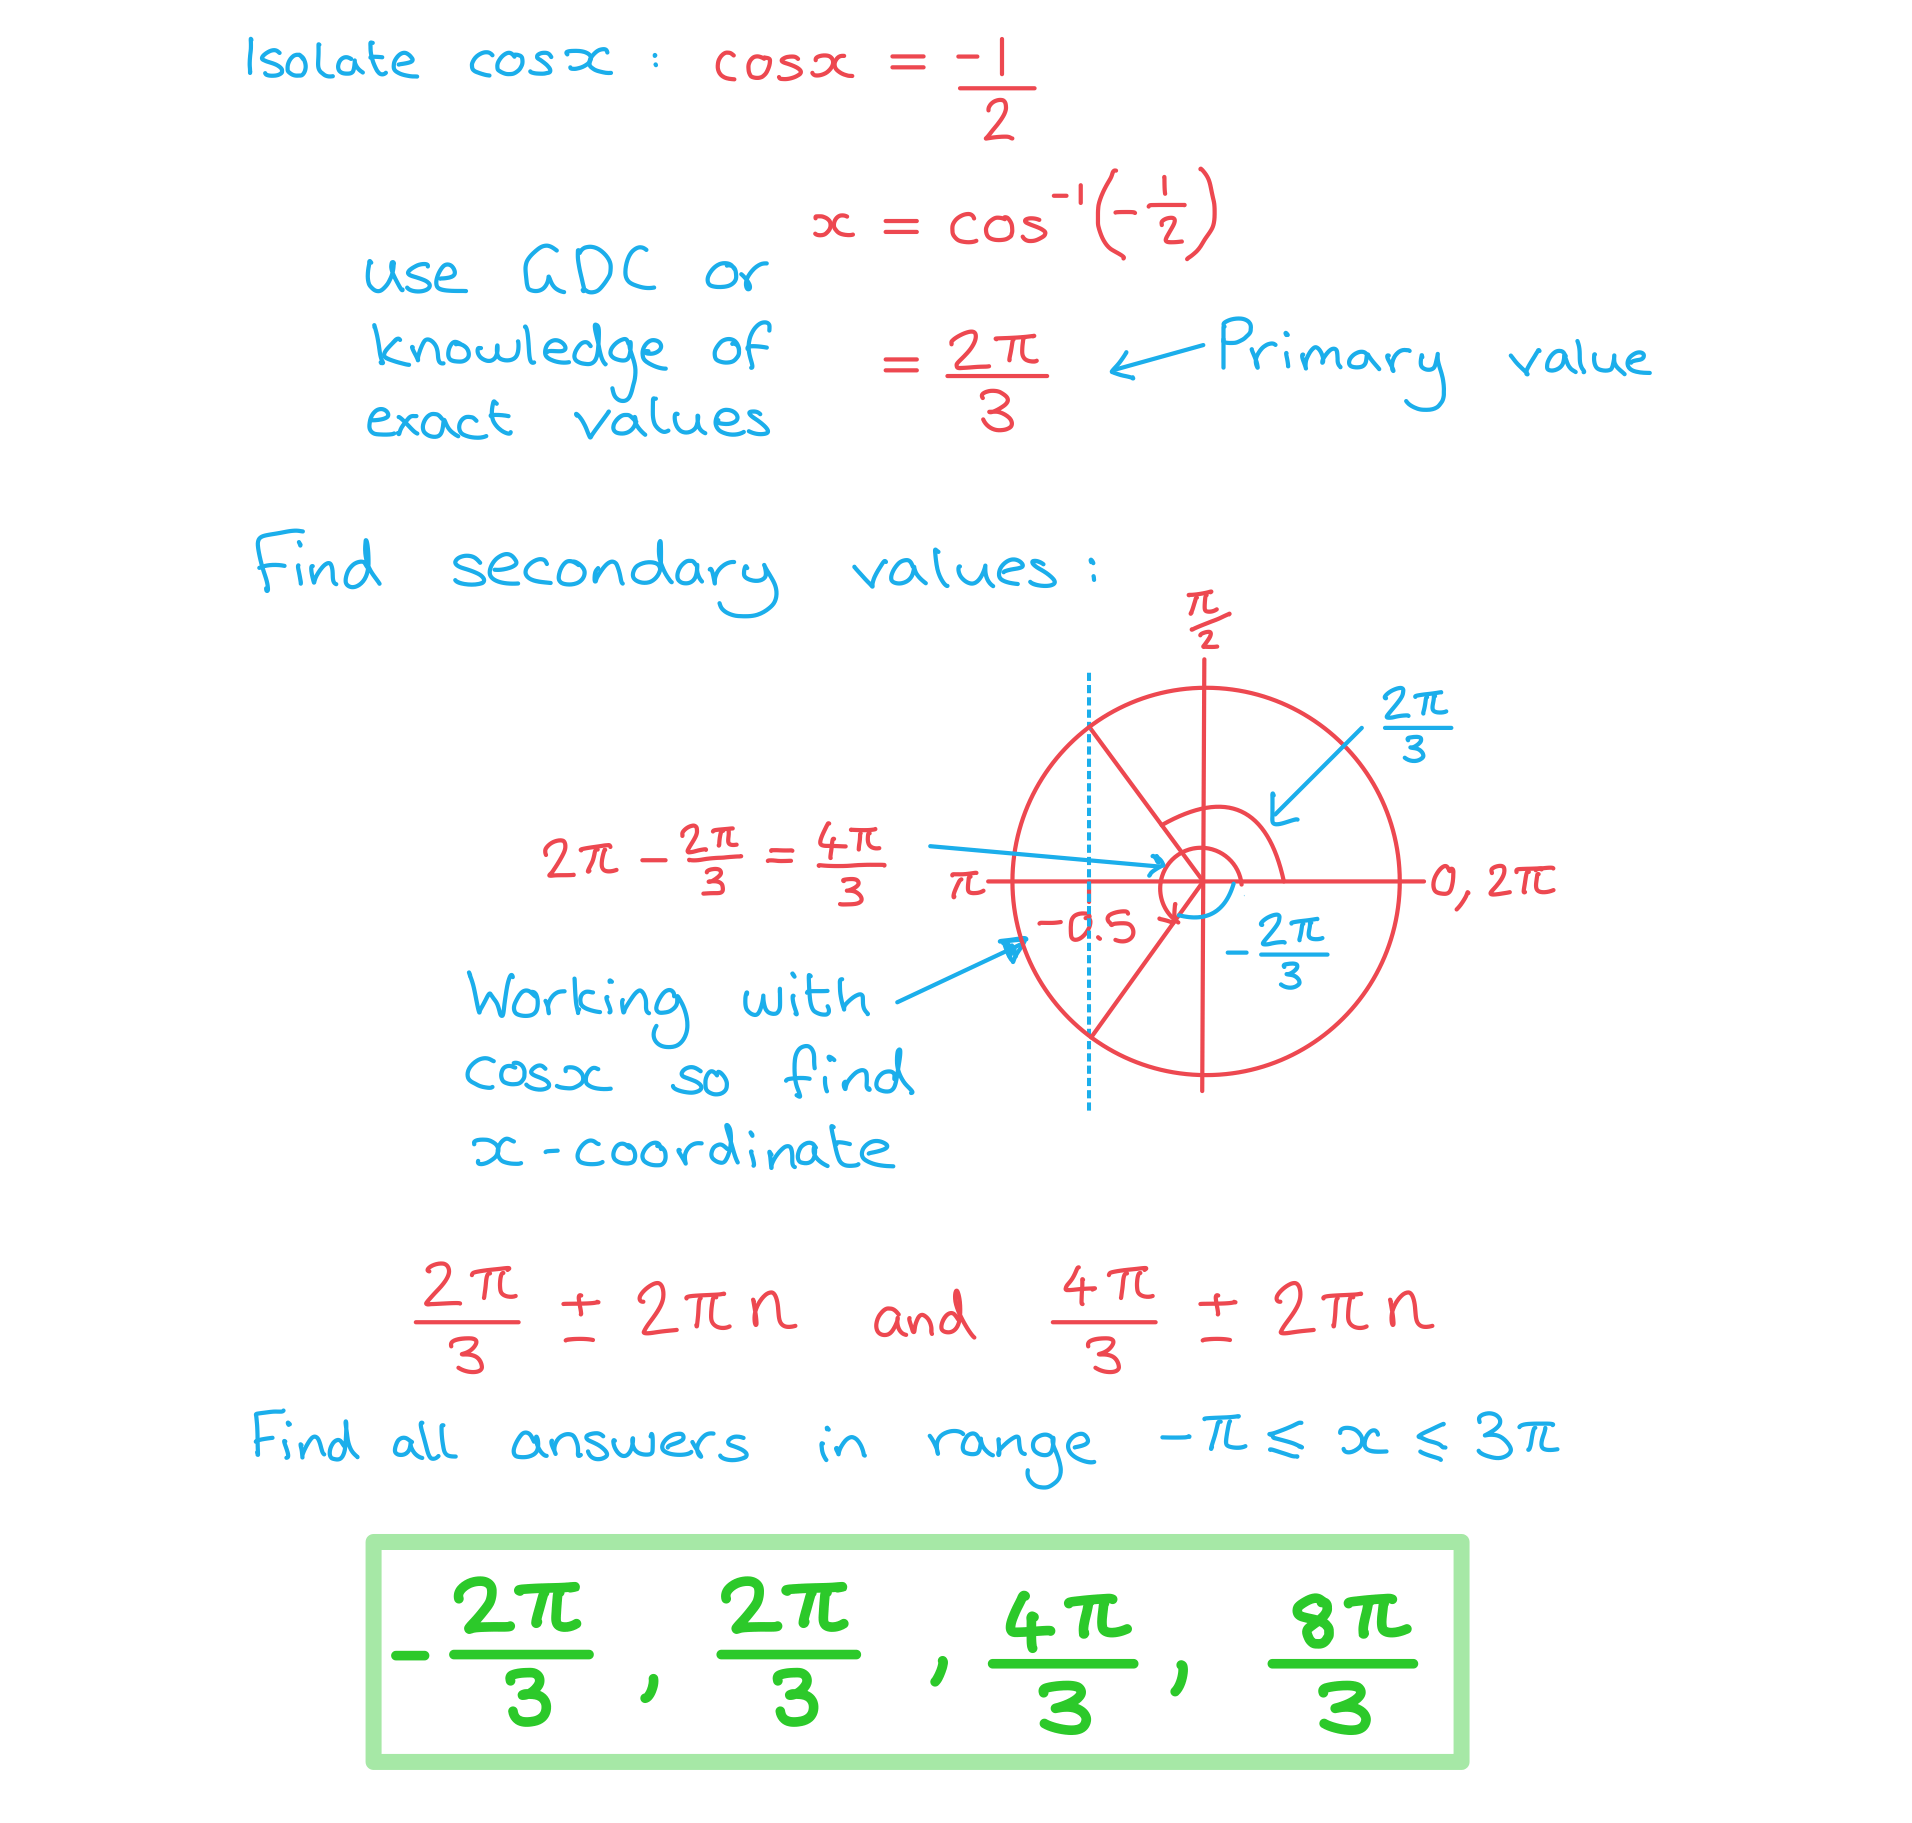 Isolate cosx : cosx = -1/2
x = cos⁻¹(-1/2)
use GDC or
knowledge of
exact values
= 2π/3 ← Primary value
Find secondary values :
π/2
2π/3
2π - 2π/3 = 4π/3
π
0, 2π
-0.5
-2π/3
Working with
cosx so find
x-coordinate
2π/3 ± 2πn and 4π/3 ± 2πn
Find all answers in range -π ≤ x ≤ 3π
-2π/3 , 2π/3 , 4π/3 , 8π/3